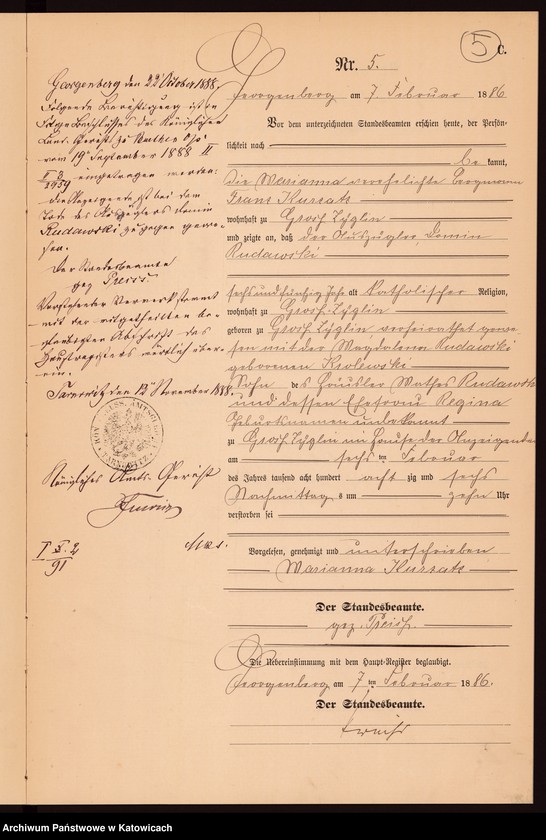 5
C.
Nr. 5.
Georgenberg am 7. Februar 1886
Vor dem unterzeichneten Standesbeamten erschien heute, der Persön-
lichkeit nach
be kannt,
die Marianna verehelichte Bergmann
Franz Kurzatz
wohnhaft zu Groß Zyglin
und zeigte an, daß der Auszügler Domin
Rudawski
sechs und fünfzig Jahr alt katholischer Religion,
wohnhaft zu Groß Zyglin
geboren zu Groß Zyglin verheirathet gewe
sen mit der Magdalena Rudawski
geborenen Krolewski
Sohn des Häusler Mathes Rudawski
und dessen Ehefrau Regina
Geburtsnamen unbekannt
zu Groß Zyglin im Hause der Anzeigenden
am sechsten Februar
des Jahres tausend acht hundert acht zig und sechs
Nachmittags um zehn Uhr
verstorben sei
Vorgelesen, genehmigt und unterschrieben
Marianna Kurzatz
Der Standesbeamte.
gez. Preiß.
Die Uebereinstimmung mit dem Haupt-Register beglaubigt.
Georgenberg am 7ten Februar 1886.
Der Standesbeamte.
Georgenberg den 22 Oktober 1888.
Folgende Berichtigung ist in
Folge Beschlusses des Königlichen
Land-Gericht zu Beuthen O/S.
vom 19 September 1888 II
eingetragen worden:
die Anzeigende ist bei dem
Tode des Auszüglers Domin
Rudawski zugegen gewe-
sen.
Der Standesbeamte
gez Preiss.
Vorstehender Vermerk stimmt
mit der mitgetheilten be-
glaubigten Abschrift des
Hauptregisters wörtlich über-
ein.
Tarnowitz den 13 November 1888.
Königliches Amts-Gericht
Archiwum Państwowe w Katowicach